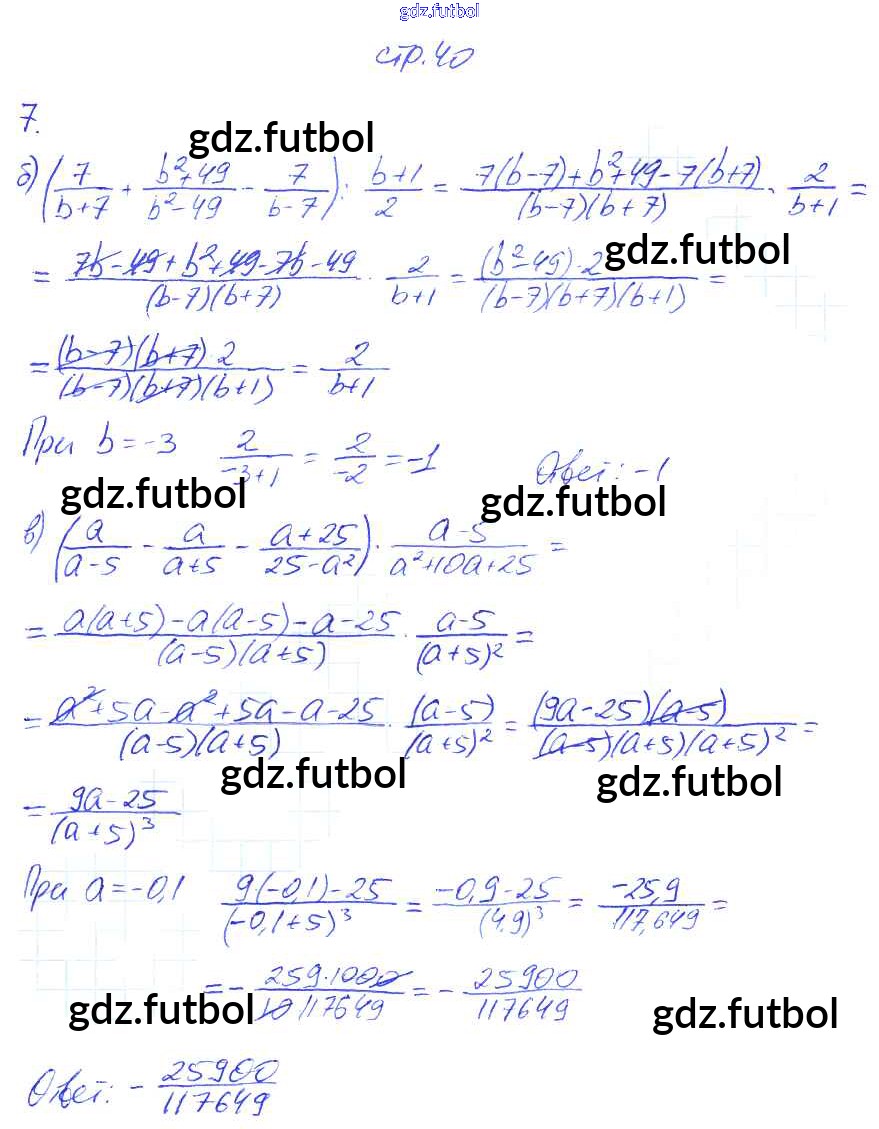 gdz.futbol
стр. 40
7.
gdz.futbol
б) (7/(b+7) + (b²+49)/(b²-49) - 7/(b-7)) : (b+1)/2 = (7(b-7)+b²+49-7(b+7))/((b-7)(b+7)) · 2/(b+1) =
gdz.futbol
= (7b-49+b²+49-7b-49)/((b-7)(b+7)) · 2/(b+1) = ((b²-49)·2)/((b-7)(b+7)(b+1)) =
= ((b-7)(b+7)2)/((b-7)(b+7)(b+1)) = 2/(b+1)
При b=-3 2/(-3+1) = 2/(-2) = -1 Ответ: -1
gdz.futbol gdz.futbol
в) (a/(a-5) - a/(a+5) - (a+25)/(25-a²)) · (a-5)/(a²+10a+25) =
= (a(a+5)-a(a-5)-a-25)/((a-5)(a+5)) · (a-5)/(a+5)² =
= (a²+5a-a²+5a-a-25)/((a-5)(a+5)) · (a-5)/(a+5)² = ((9a-25)(a-5))/((a-5)(a+5)(a+5)²) =
gdz.futbol gdz.futbol
= (9a-25)/(a+5)³
При a=-0,1 (9·(-0,1)-25)/(-0,1+5)³ = (-0,9-25)/(4,9)³ = (-25,9)/(117,649) =
= - (259·1000)/(10·117649) = - 25900/117649
gdz.futbol gdz.futbol
Ответ: - 25900/117649